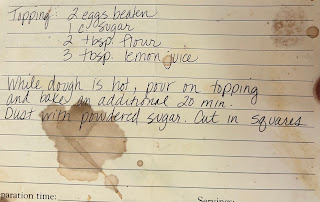 Topping: 2 eggs beaten
1 c. sugar
2 tbsp. flour
3 tbsp. lemon juice
While dough is hot, pour on topping
and bake an additional 20 min.
Dust with powdered sugar. Cut in squares
paration time:
Servings: